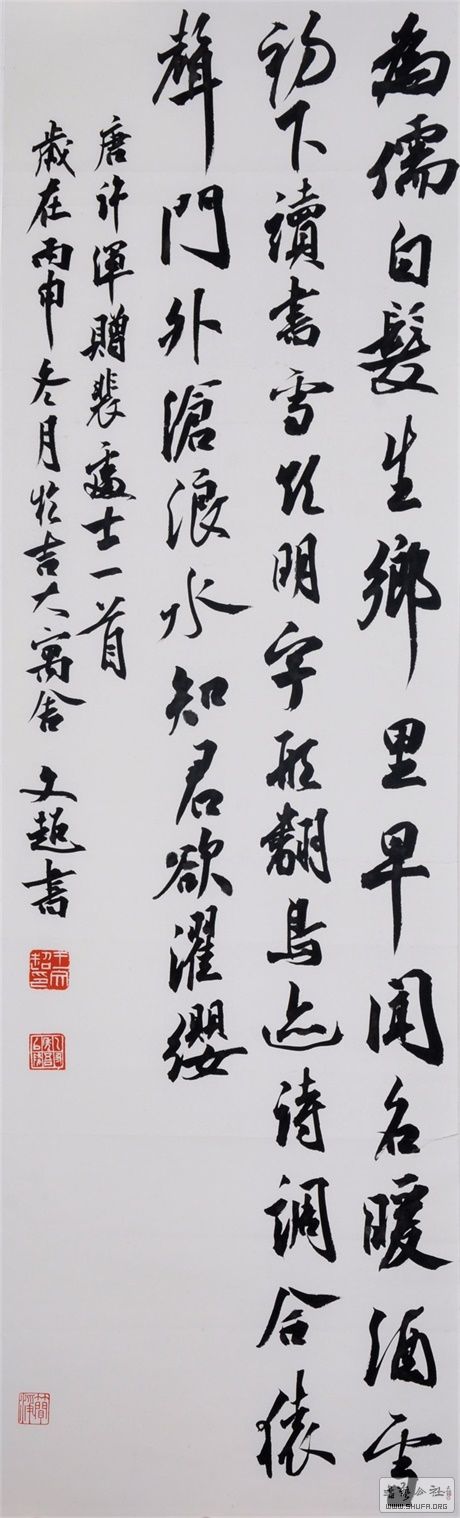 為儒白髮生鄉里早聞名暖酒雪
初下讀書雪欲明字形翻鳥迹诗調合猿
聲門外滄浪水知君欲濯纓
唐许渾贈裴處士一首
歲在丙申冬月於吉大寓舍 文超書
WWW.SHUFA.ORG